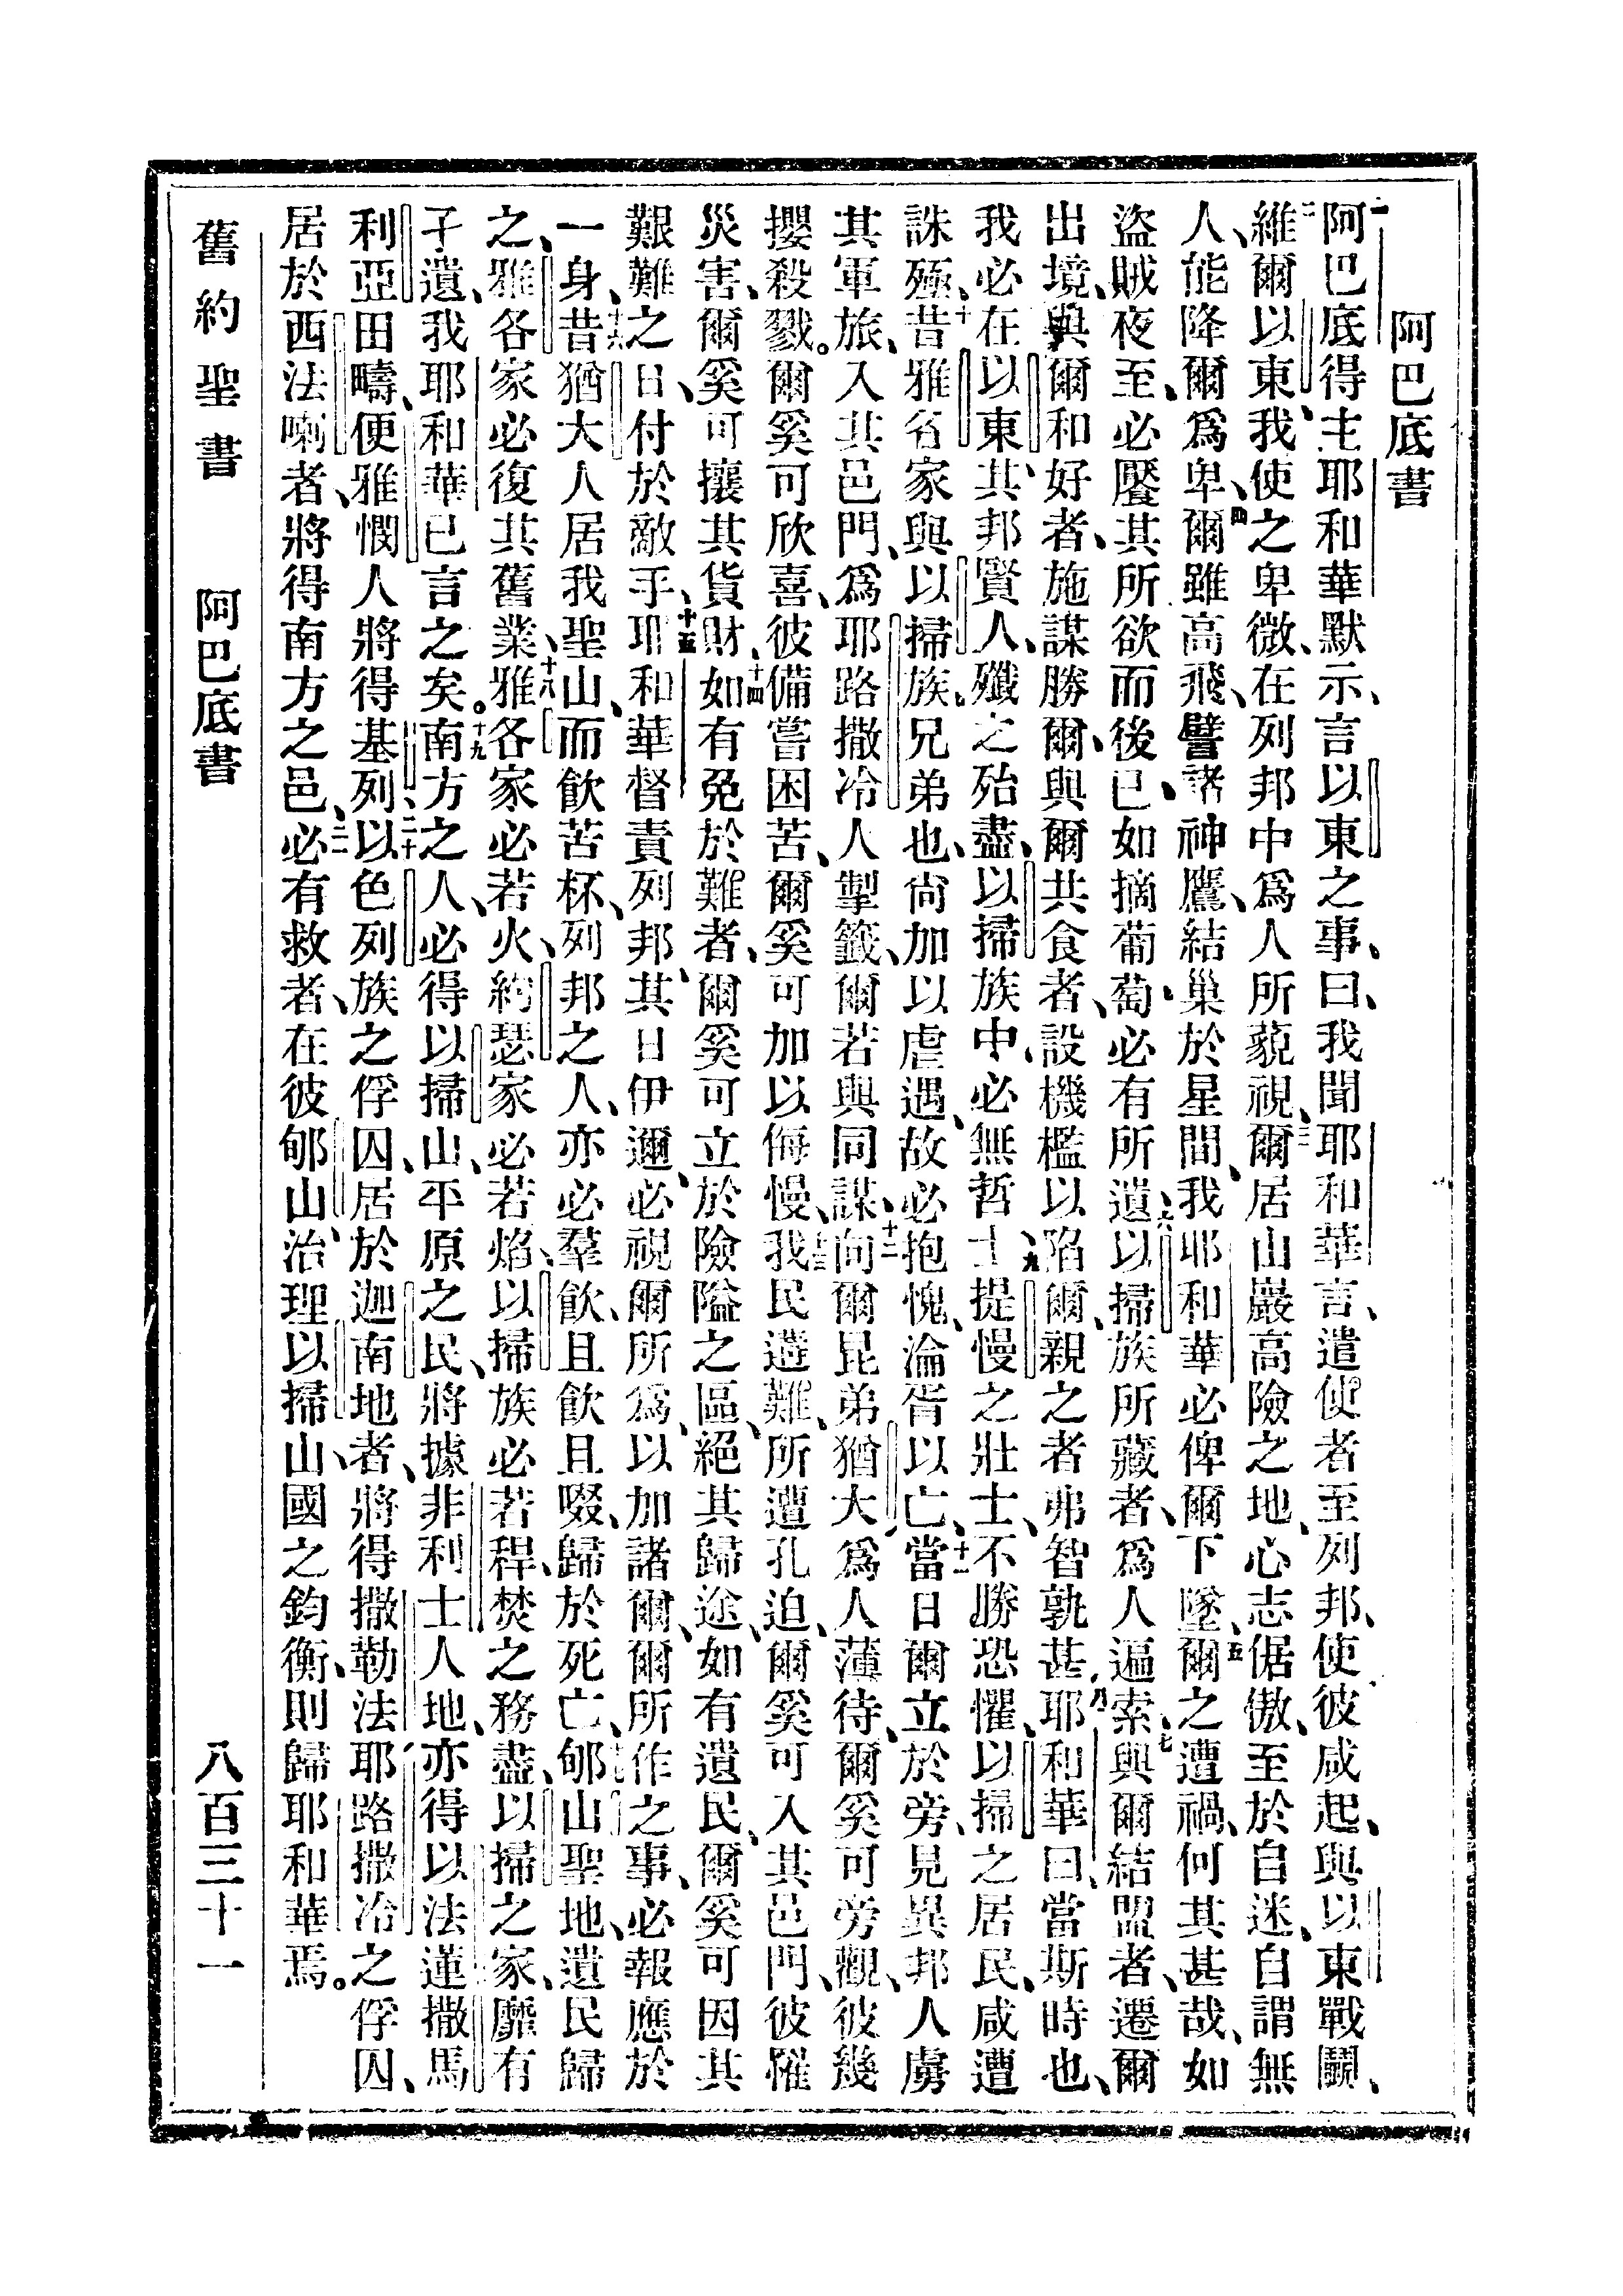 阿巴底書
一阿巴底得主耶和華默示、言以東之事、曰、我聞耶和華言、遣使者至列邦、使彼咸起、與以東戰鬭、
二維爾以東、我使之卑微、在列邦中爲人所藐視、三爾居山巖高險之地、心志倨傲、至於自迷、自謂無
人能降爾爲卑、四爾雖高飛、譬諸神鷹、結巢於星間、我耶和華必俾爾下墜、五爾之遭禍、何其甚哉、如
盜賊夜至、必饜其所欲而後已、如摘葡萄、必有所遺、六以掃族所藏者、爲人遍索、七與爾結盟者、遷爾
出境、與爾和好者、施謀勝爾、與爾共食者、設機檻以陷爾、親之者弗智孰甚、八耶和華曰、當斯時也、
我必在以東、其邦賢人、殲之殆盡、以掃族中、必無哲士、九提慢之壯士、不勝恐懼、以掃之居民、咸遭
誅殛、十昔雅各家與以掃族、兄弟也、尙加以虐遇、故必抱愧、淪胥以亡、十一當日爾立於旁、見異邦人虜
其軍旅、入其邑門、爲耶路撒冷人掣籤、爾若與同謀、十二向爾昆弟猶大、爲人薄待、爾奚可旁觀、彼幾
攖殺戮。爾奚可欣喜、彼備嘗困苦、爾奚可加以侮慢、十三我民遘難、所遭孔迫、爾奚可入其邑門、彼罹
災害、爾奚可攘其貨財、十四如有免於難者、爾奚可立於險隘之區、絕其歸途、如有遺民、爾奚可因其
艱難之日、付於敵手、十五耶和華督責列邦、其日伊邇、必視爾所爲、以加諸爾、爾所作之事、必報應於
一身、十六昔猶大人居我聖山、而飮苦杯、列邦之人、亦必羣飮、且飮且啜、歸於死亡、十七郇山聖地、遺民歸
之、雅各家必復其舊業、十八雅各家必若火、約瑟家必若焰、以掃族必若稈、焚之務盡、以掃之家、靡有
孑遺、我耶和華已言之矣。十九南方之人、必得以掃山、平原之民、將據非利士人地、亦得以法蓮撒馬
利亞田疇、便雅憫人將得基列、二十以色列族之俘囚、居於迦南地者、將得撒勒法、耶路撒冷之俘囚、
居於西法喇者、將得南方之邑、二一必有救者、在彼郇山、治理以掃山、國之鈞衡、則歸耶和華焉。
舊約聖書 阿巴底書 八百三十一